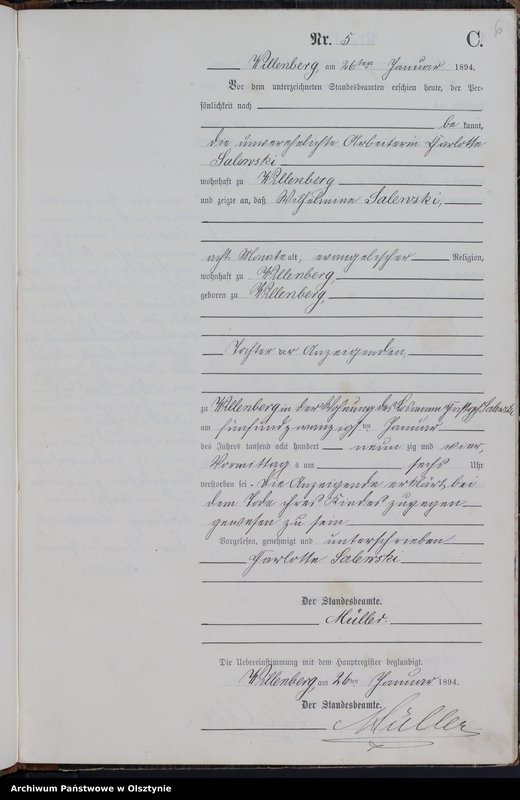 6
Nr. 5 C.
Willenberg, am 26ten Januar 1894.
Vor dem unterzeichneten Standesbeamten erschien heute, der Per-
sönlichkeit nach
be kannt,
die unverehelichte Arbeiterin Charlotte
Salewski
wohnhaft zu Willenberg
und zeigte an, daß Wilhelmine Salewski,
acht Monate alt, evangelischer Religion,
wohnhaft zu Willenberg,
geboren zu Willenberg,
Tochter der Anzeigenden
zu Willenberg in der Wohnung des Salewski
am fünfundzwanzigsten Januar
des Jahres tausend acht hundert neun zig und vier,
Vormittags um sechs Uhr
verstorben sei. Die Anzeigende erklärt, bei
dem Tode ihres Kindes zugegen
gewesen zu sein.
Vorgelesen, genehmigt und unterschrieben
Charlotte Salewski
Der Standesbeamte.
Müller.
Die Uebereinstimmung mit dem Hauptregister beglaubigt.
Willenberg, am 26ten Januar 1894.
Der Standesbeamte.
Müller
Archiwum Państwowe w Olsztynie